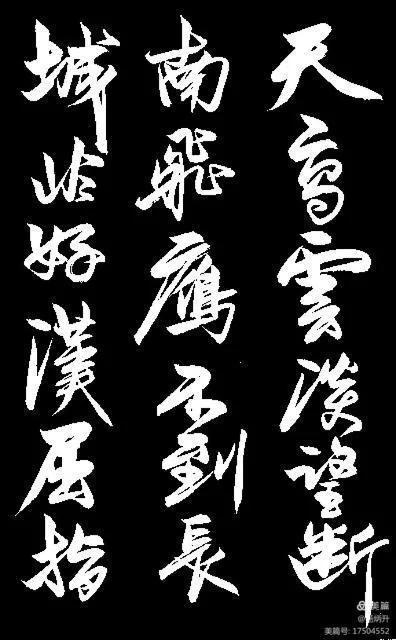 天高雲淡望斷
南飛鴈不到長
城非好漢屈指
美篇
炳升
美篇号: 17504552